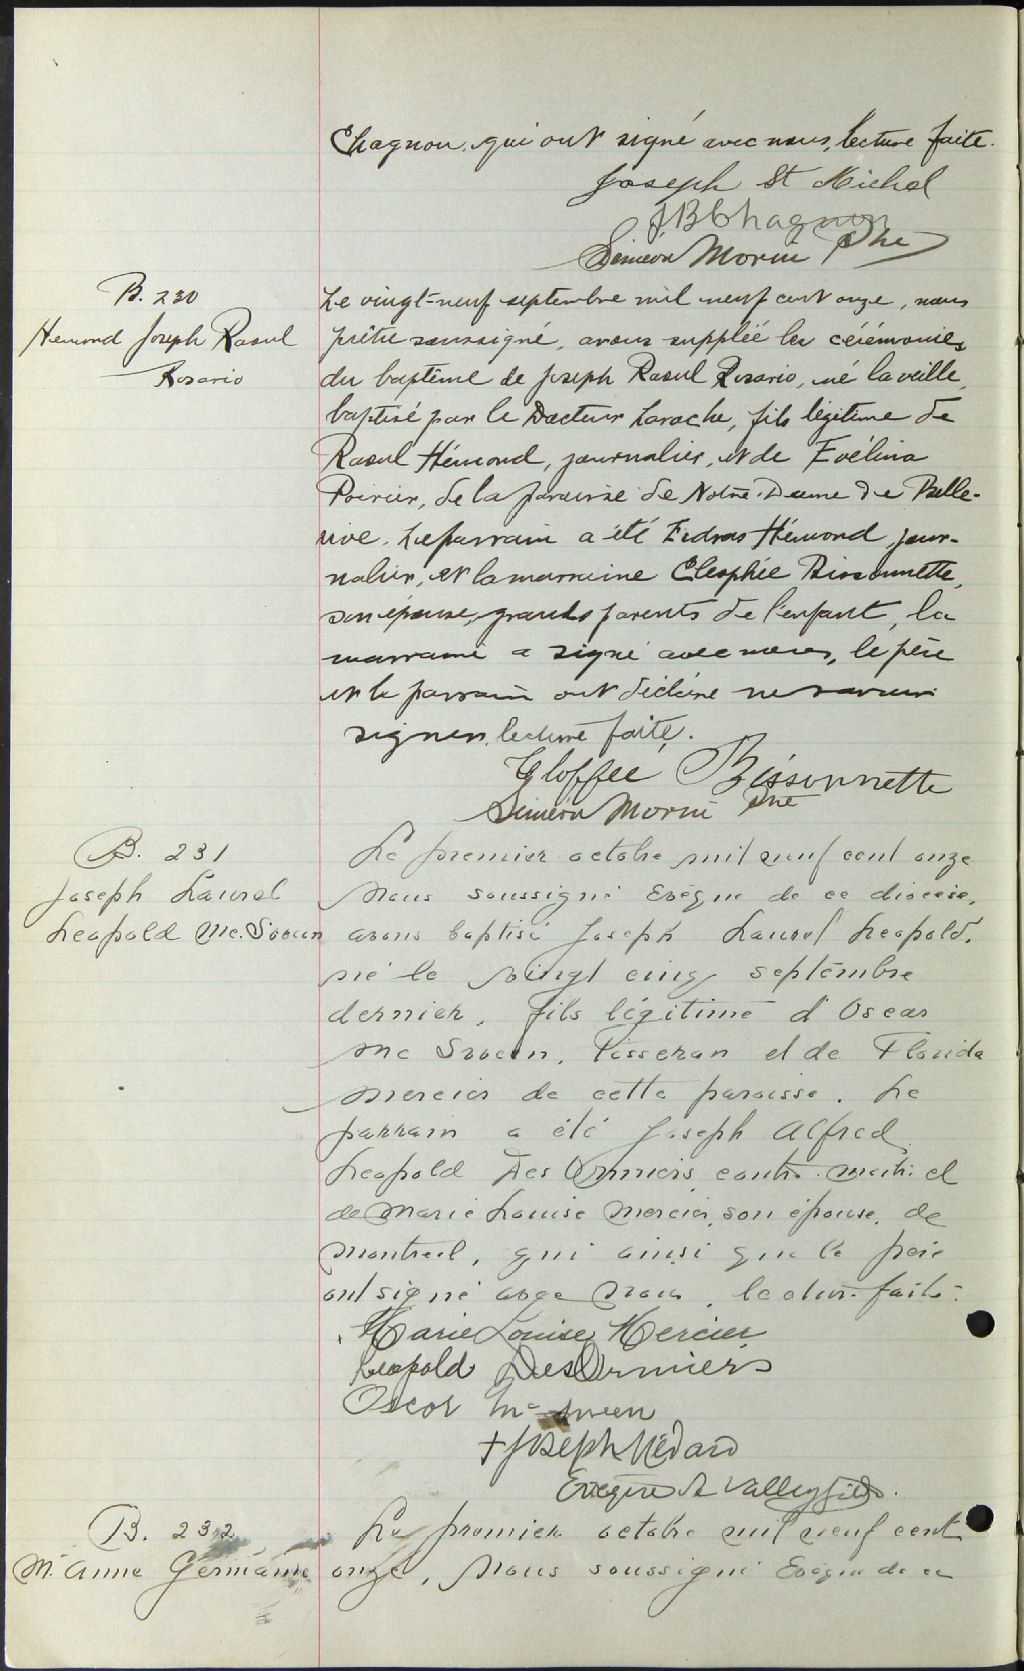 Chagnon qui ont signé avec nous, lecture faite.
Joseph St Michel
JBChagnon
Siméon Morin Ptre
B. 230
Hémond Joseph Raoul
Rosario
Le vingt-neuf septembre mil neuf cent onze, nous
prêtre soussigné, avons suppléé les cérémonies
du baptême de Joseph Raoul Rosario, né la veille,
baptisé par le Docteur Laroche, fils légitime de
Raoul Hémond, journalier, et de Evélina
Poirier, de la paroisse de Notre-Dame de Belle-
rive. Le parrain a été Esdras Hémond, jour-
nalier, et la marraine Cléophée Bissonnette,
son épouse, grands parents de l'enfant, la
marraine a signé avec nous, le père
et le parrain ont déclaré ne savoir
signer, lecture faite.
Eloffée Bissonnette
Siméon Morin Ptre
B. 231
Joseph Laurel
Leopold Mc. Sween
Le premier octobre mil neuf cent onze
Nous soussigné Evêque de ce diocèse,
avons baptisé Joseph Laurel Leopold.
né le vingt cinq septembre
dernier, fils légitime d'Oscar
Mc Sween, Tisseran et de Florida
Mercier de cette paroisse. Le
parrain a été Joseph Alfred
Leopold DesOrmiers, contre-maitre et
de Marie Louise Mercier, son épouse, de
Montreal, qui ainsi que le père
ont signé avec nous, lecture faite.
Marie Louise Mercier
Leopold DesOrmiers
Oscar Mc Sween
† Joseph Médard
Evêque de Valleyfield.
B. 232
M. Anne Germaine
Le premier octobre mil neuf cent
onze, Nous soussigné Evêque de ce